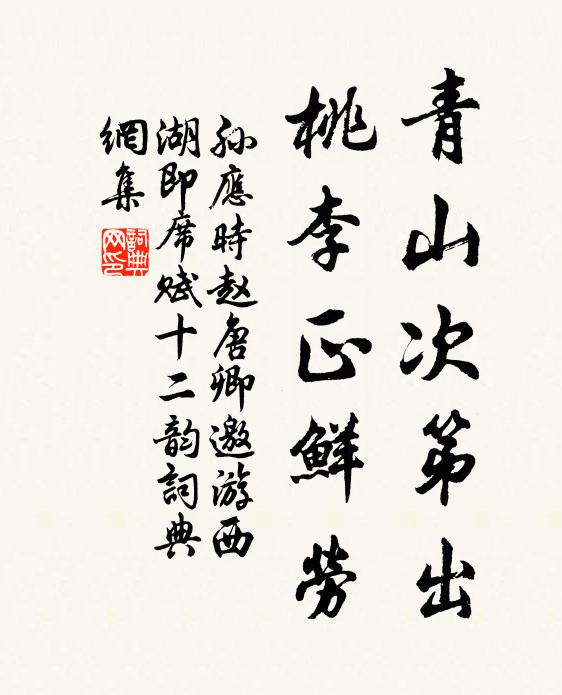 青山次第出
桃李正鮮勞
孫應時赵唐卿邀游西
湖即席賦十二韵詞典
網集
詞典
网印